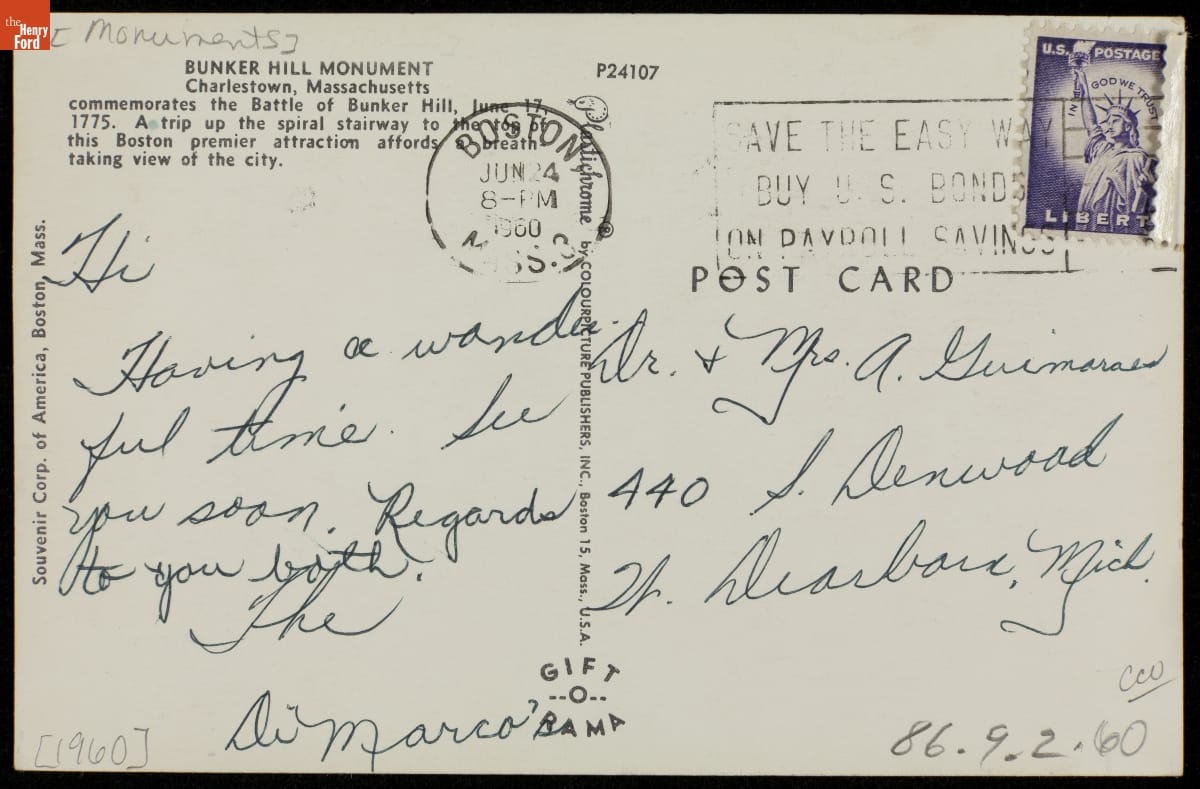 the
Henry
Ford
[Monuments]
BUNKER HILL MONUMENT
Charlestown, Massachusetts
commemorates the Battle of Bunker Hill, June 17,
1775. A trip up the spiral stairway to the top of
this Boston premier attraction affords a breath-
taking view of the city.
P24107
BOSTON
JUN 24
8-PM
1960
MASS.
SAVE THE EASY WAY
BUY U.S. BONDS
ON PAYROLL SAVINGS
U.S. POSTAGE
IN GOD WE TRUST
LIBERTY
POST CARD
Souvenir Corp. of America, Boston, Mass.
Plastichrome ® by COLOURPICTURE PUBLISHERS, INC., Boston 15, Mass., U.S.A.
Hi
Having a wonder-
ful time. See
you soon. Regards
to you both.
The
DiMarco's
Dr. & Mrs. A. Guimaraes
440 S. Denwood
W. Dearborn, Mich.
GIFT
--O--
RAMA
[1960]
CCO
86.9.2.60